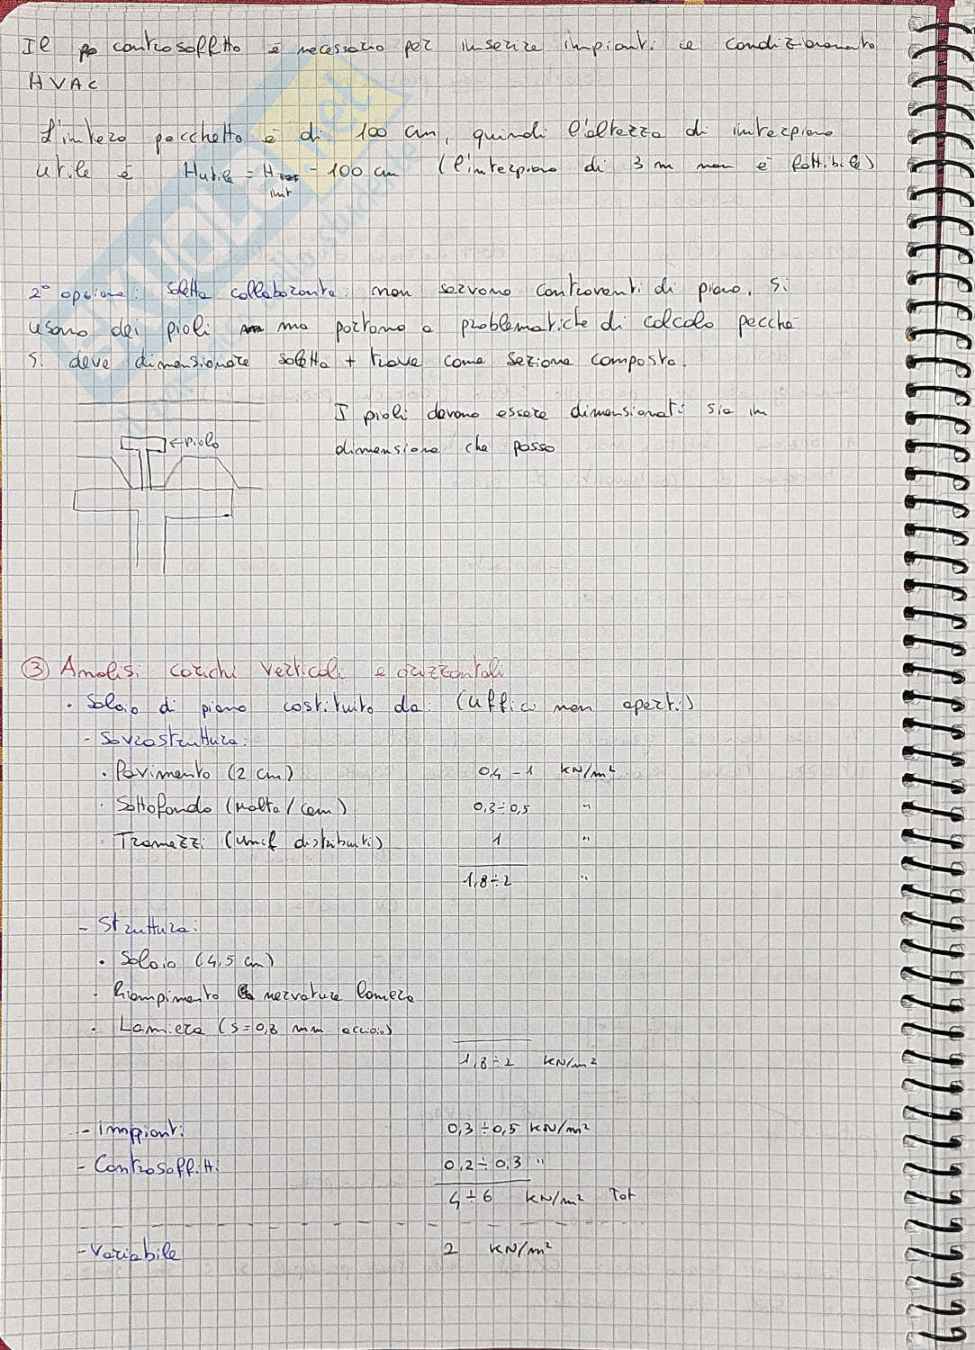 Il controsoffitto è necessario per inserire impianti ie condizionamento
HVAC
L'intero pacchetto è di 100 cm, quindi l'altezza di interpiano
utile è Hutile = H - 100 cm (l'interpiano di 3 m non è fattibile)
int
2° opzione: soletta collaborante: non servono controventi di piano. Si
usano dei pioli ma portano a problematiche di calcolo perché
si deve dimensionare soletta + trave come sezione composta.
I pioli devono essere dimensionati sia in
← Piolo
dimensione che passo
③ Analisi carichi verticali e orizzontali
• Solaio di piano costituito da: (uffici non aperti)
- Sovrastruttura:
• Pavimento (2 cm) 0,4 - 1 KN/m²
• Sottofondo (Malta/cem) 0,3÷0,5 "
• Tramezzi (unif distribuiti) 1 "
1,8÷2 "
- Struttura:
• Solaio (4,5 cm)
• Riempimento nervature lamiera
• Lamiera (s=0,8 mm acciaio)
1,8÷2 KN/m²
- Impianti 0,3÷0,5 KN/m²
- Controsoffitti 0,2÷0,3 "
4÷6 KN/m² Tot
- Variabile 2 KN/m²